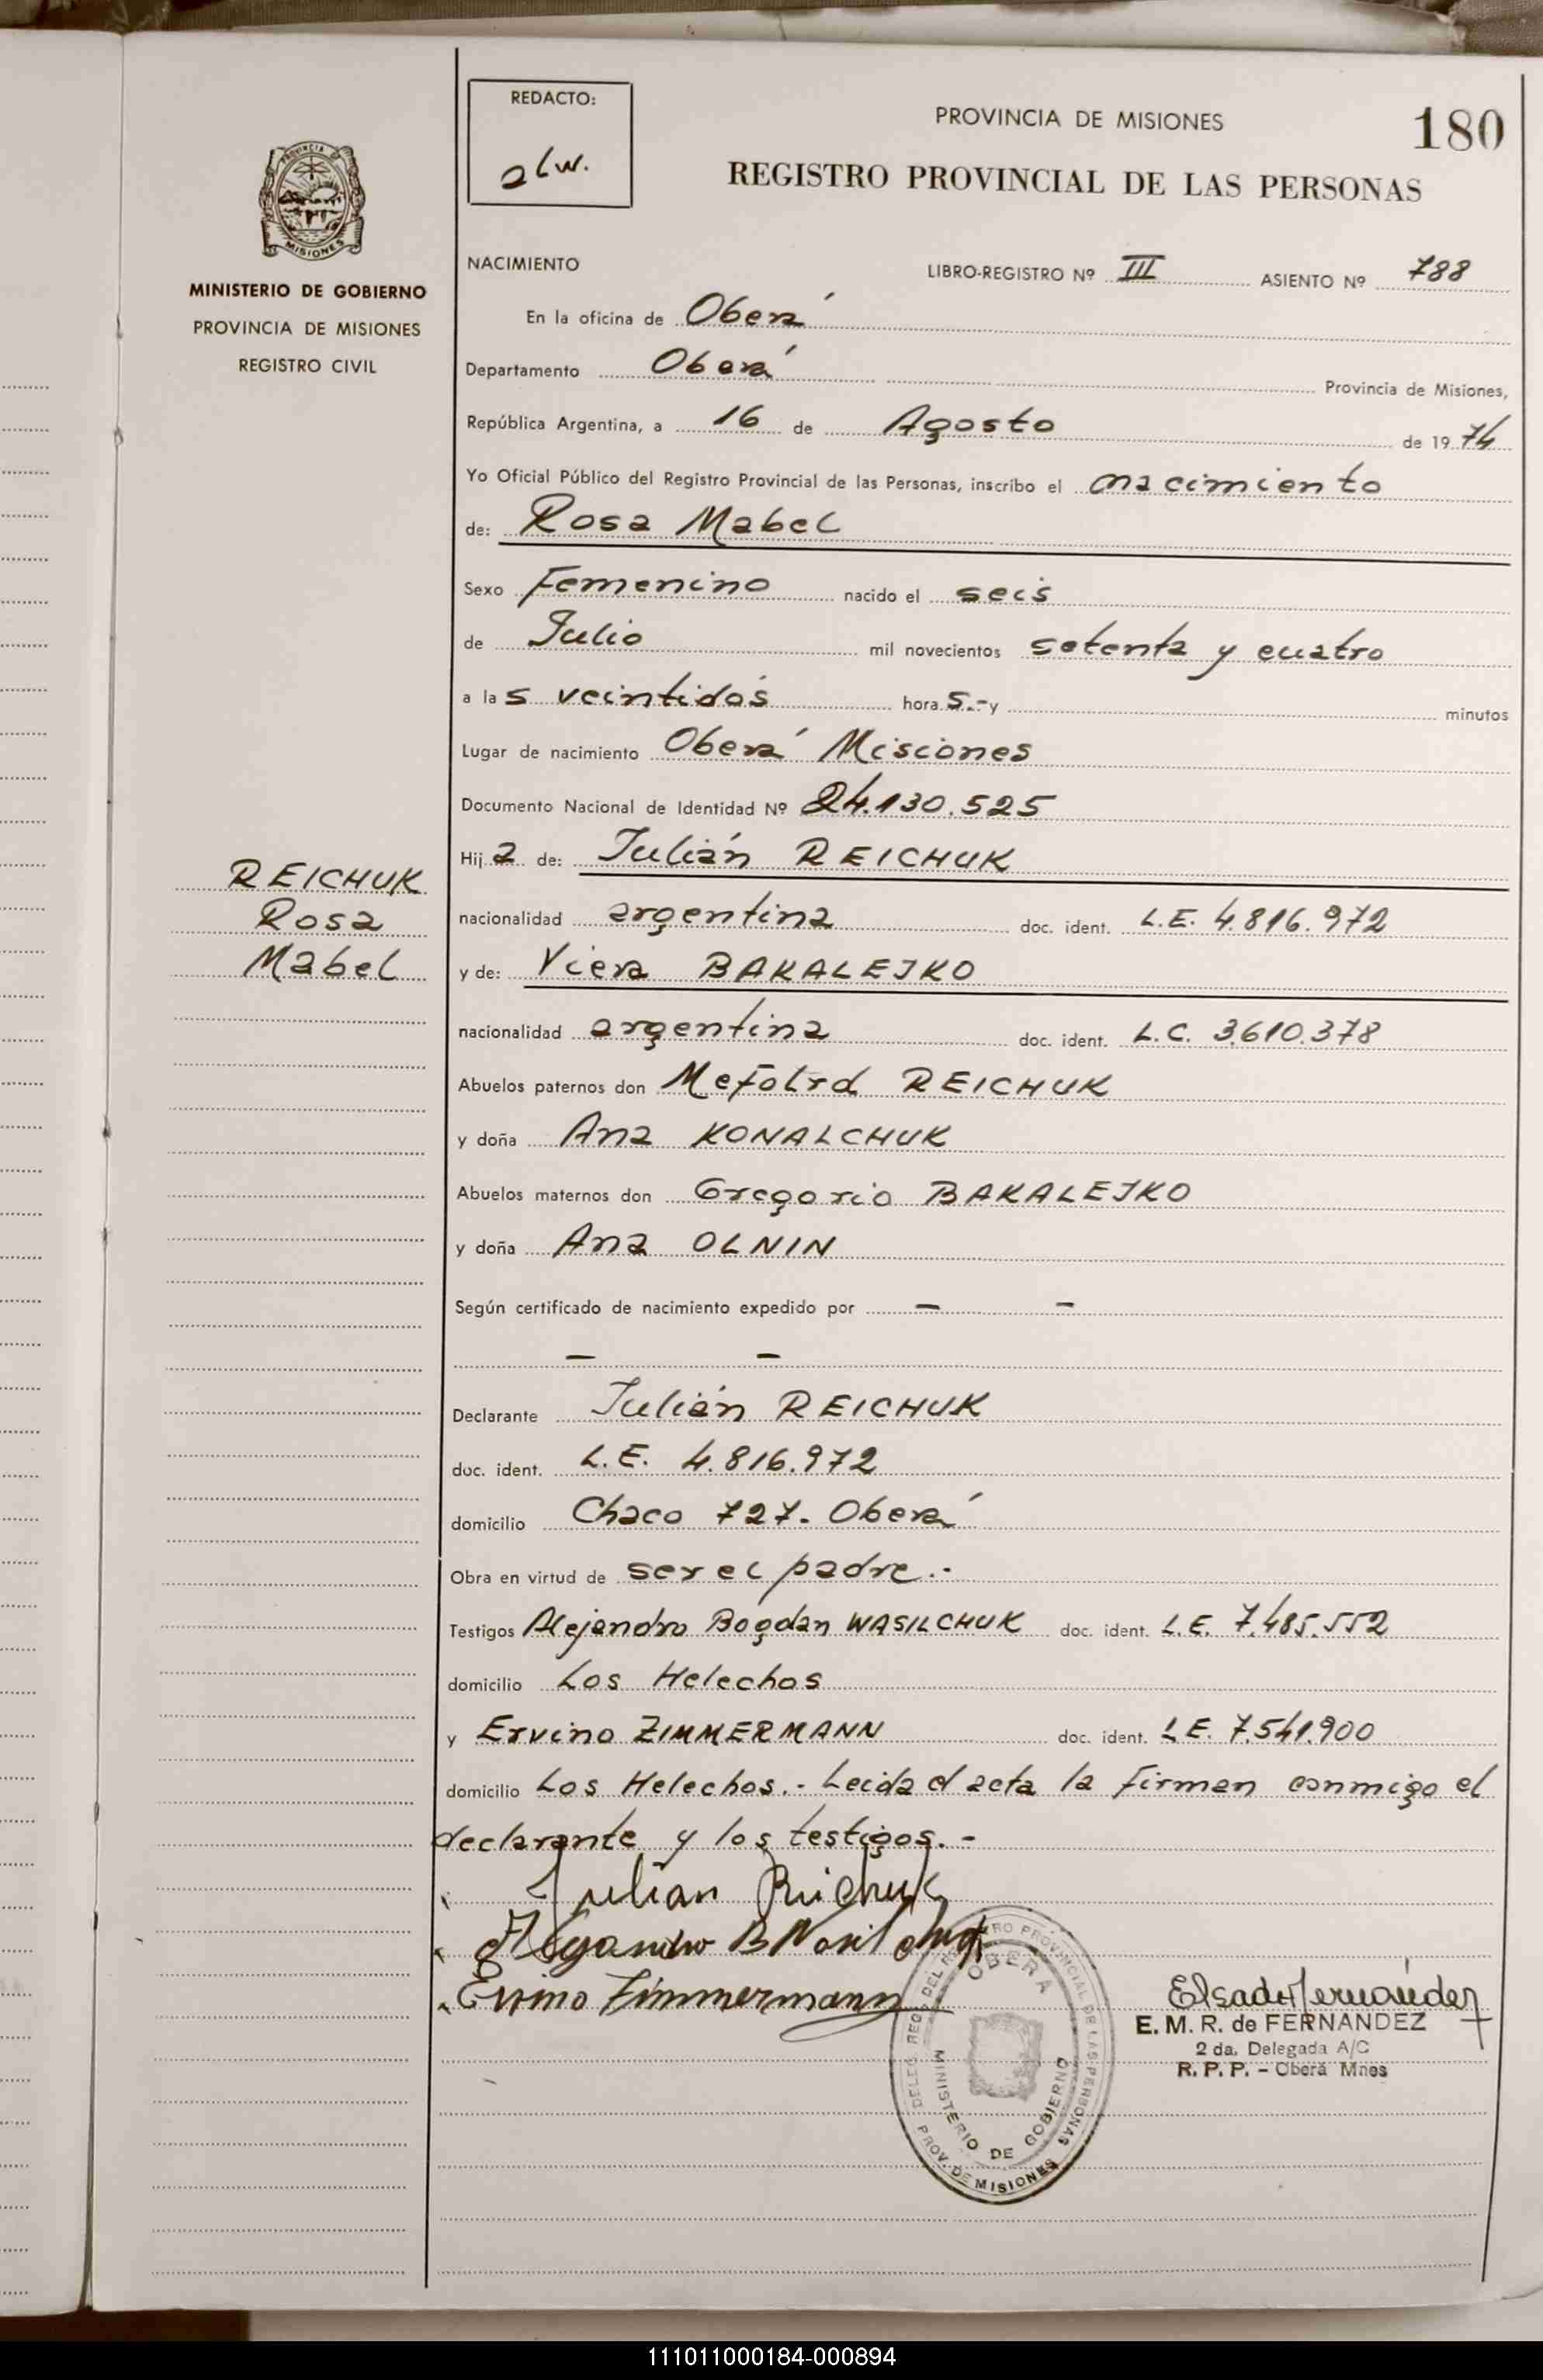 REDACTO:
alw.
PROVINCIA DE MISIONES
180
REGISTRO PROVINCIAL DE LAS PERSONAS
PROVINCIA DE
MISIONES
MINISTERIO DE GOBIERNO
PROVINCIA DE MISIONES
REGISTRO CIVIL
NACIMIENTO LIBRO-REGISTRO Nº III ASIENTO Nº 788
En la oficina de Oberá
Departamento Oberá Provincia de Misiones,
República Argentina, a 16 de Agosto de 1974
Yo Oficial Público del Registro Provincial de las Personas, inscribo el nacimiento
de: Rosa Mabel
Sexo Femenino nacido el seis
de Julio mil novecientos setenta y cuatro
a las veintidós horas.- y minutos
Lugar de nacimiento Oberá Misiones
Documento Nacional de Identidad Nº 24.130.525
Hija de: Julián REICHUK
REICHUK
Rosa
Mabel
nacionalidad argentina doc. ident. L.E. 4.816.972
y de: Viera BAKALEJKO
nacionalidad argentina doc. ident. L.C. 3.610.378
Abuelos paternos don REICHUK
y doña Ana KONALCHUK
Abuelos maternos don Gregorio BAKALEJKO
y doña Ana OLNIN
Según certificado de nacimiento expedido por - -
- -
Declarante Julián REICHUK
doc. ident. L.E. 4.816.972
domicilio Chaco 727. Oberá
Obra en virtud de ser el padre.-
Testigos Alejandro Bogdan WASILCHUK doc. ident. L.E. 7.485.552
domicilio Los Helechos
y Ervino ZIMMERMANN doc. ident. L.E. 7.541.900
domicilio Los Helechos.- Leida el acta la firman conmigo el
declarante y los testigos.-
Julian Reichuk
Alejandro B Wasilchuk
Ervino Zimmermann
Elsa de Fernández
E. M. R. de FERNANDEZ
2 da. Delegada A/C
R. P. P. - Oberá Mnes
DELEG. REG. DEL REGISTRO PROVINCIAL DE LAS PERSONAS
OBERA
MINISTERIO DE GOBIERNO
PROV. DE MISIONES
111011000184-000894